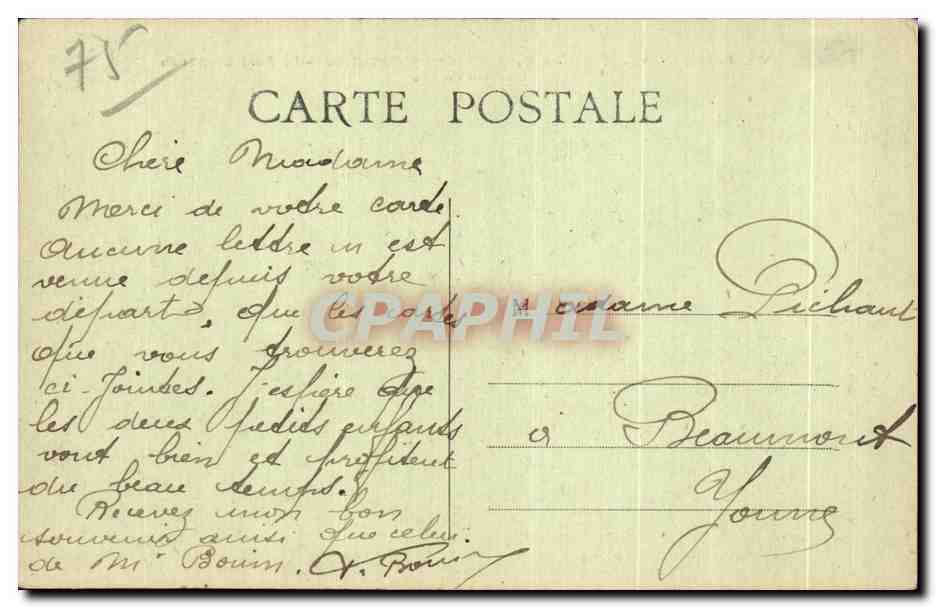 75
CARTE POSTALE
Chère Madame
Merci de votre carte
Aucune lettre n est
venue depuis votre
départ, que les cartes
que vous trouverez
ci-Jointes. J'espère que
les deux petits enfants
vont bien et profitent
du beau temps.
Recevez mon bon
souvenir ainsi que celui
de Mr
Madame Pichaut
à Beaumont
Yonne
CPAPHIL